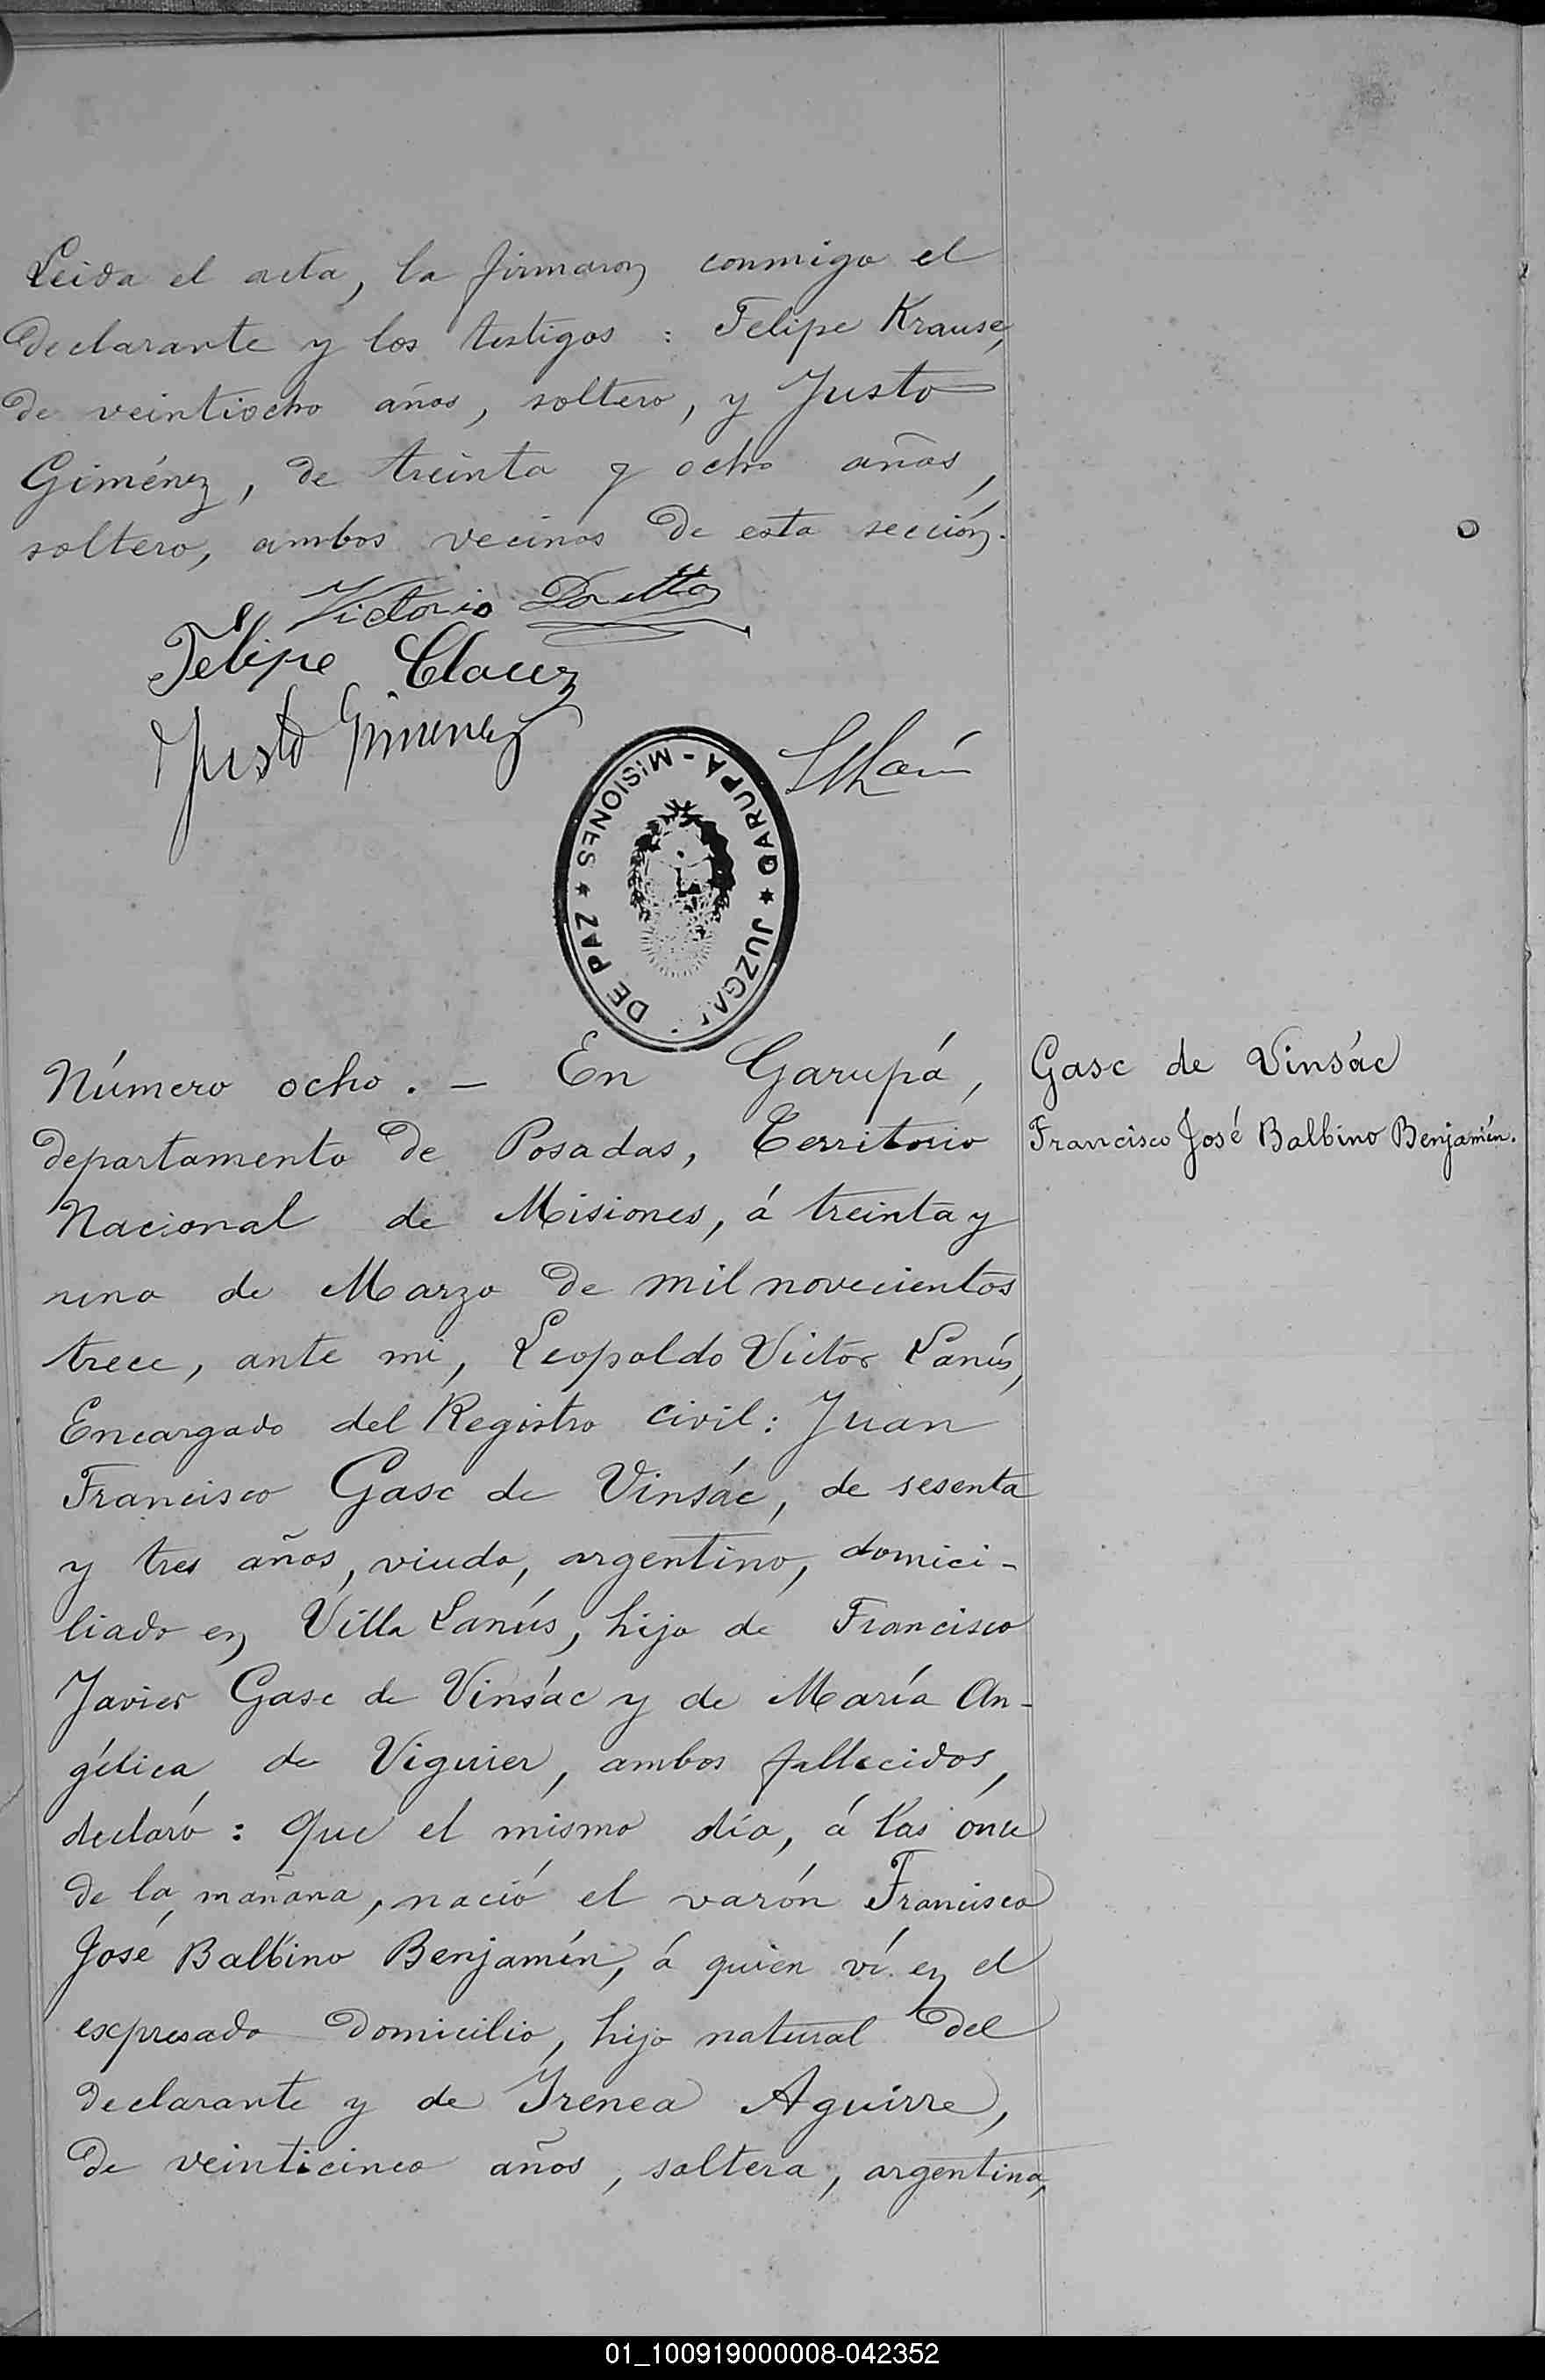 Leida el acta, la firmaron conmigo el
declarante y los testigos : Felipe Krause,
de veintiocho años, soltero, y Justo
Giménez, de treinta y ocho años,
soltero, ambos vecinos de esta sección.
Victorio
Felipe Clauez
Justo Gimenez
JUZGA DE PAZ * MISIONES - GARUPA *
Número ocho. - En Garupá,
departamento de Posadas, Territorio
Nacional de Misiones, á treinta y
uno de Marzo de mil novecientos
trece, ante mi, Leopoldo Victor Lanús,
Encargado del Registro civil: Juan
Francisco Gasc de Vinsác, de sesenta
y tres años, viudo, argentino, domici-
liado en Villa Lanús, hijo de Francisco
Javier Gasc de Vinsác y de María An-
gélica de Viguier, ambos fallecidos,
declaró : Que el mismo día, á las once
de la mañana, nació el varón Francisco
José Balbino Benjamín, á quien ví en el
expresado domicilio, hijo natural del
declarante y de Irenea Aguirre,
de veinticinco años, soltera, argentina,
Gasc de Vinsác
Francisco José Balbino Benjamín.
01_100919000008-042352